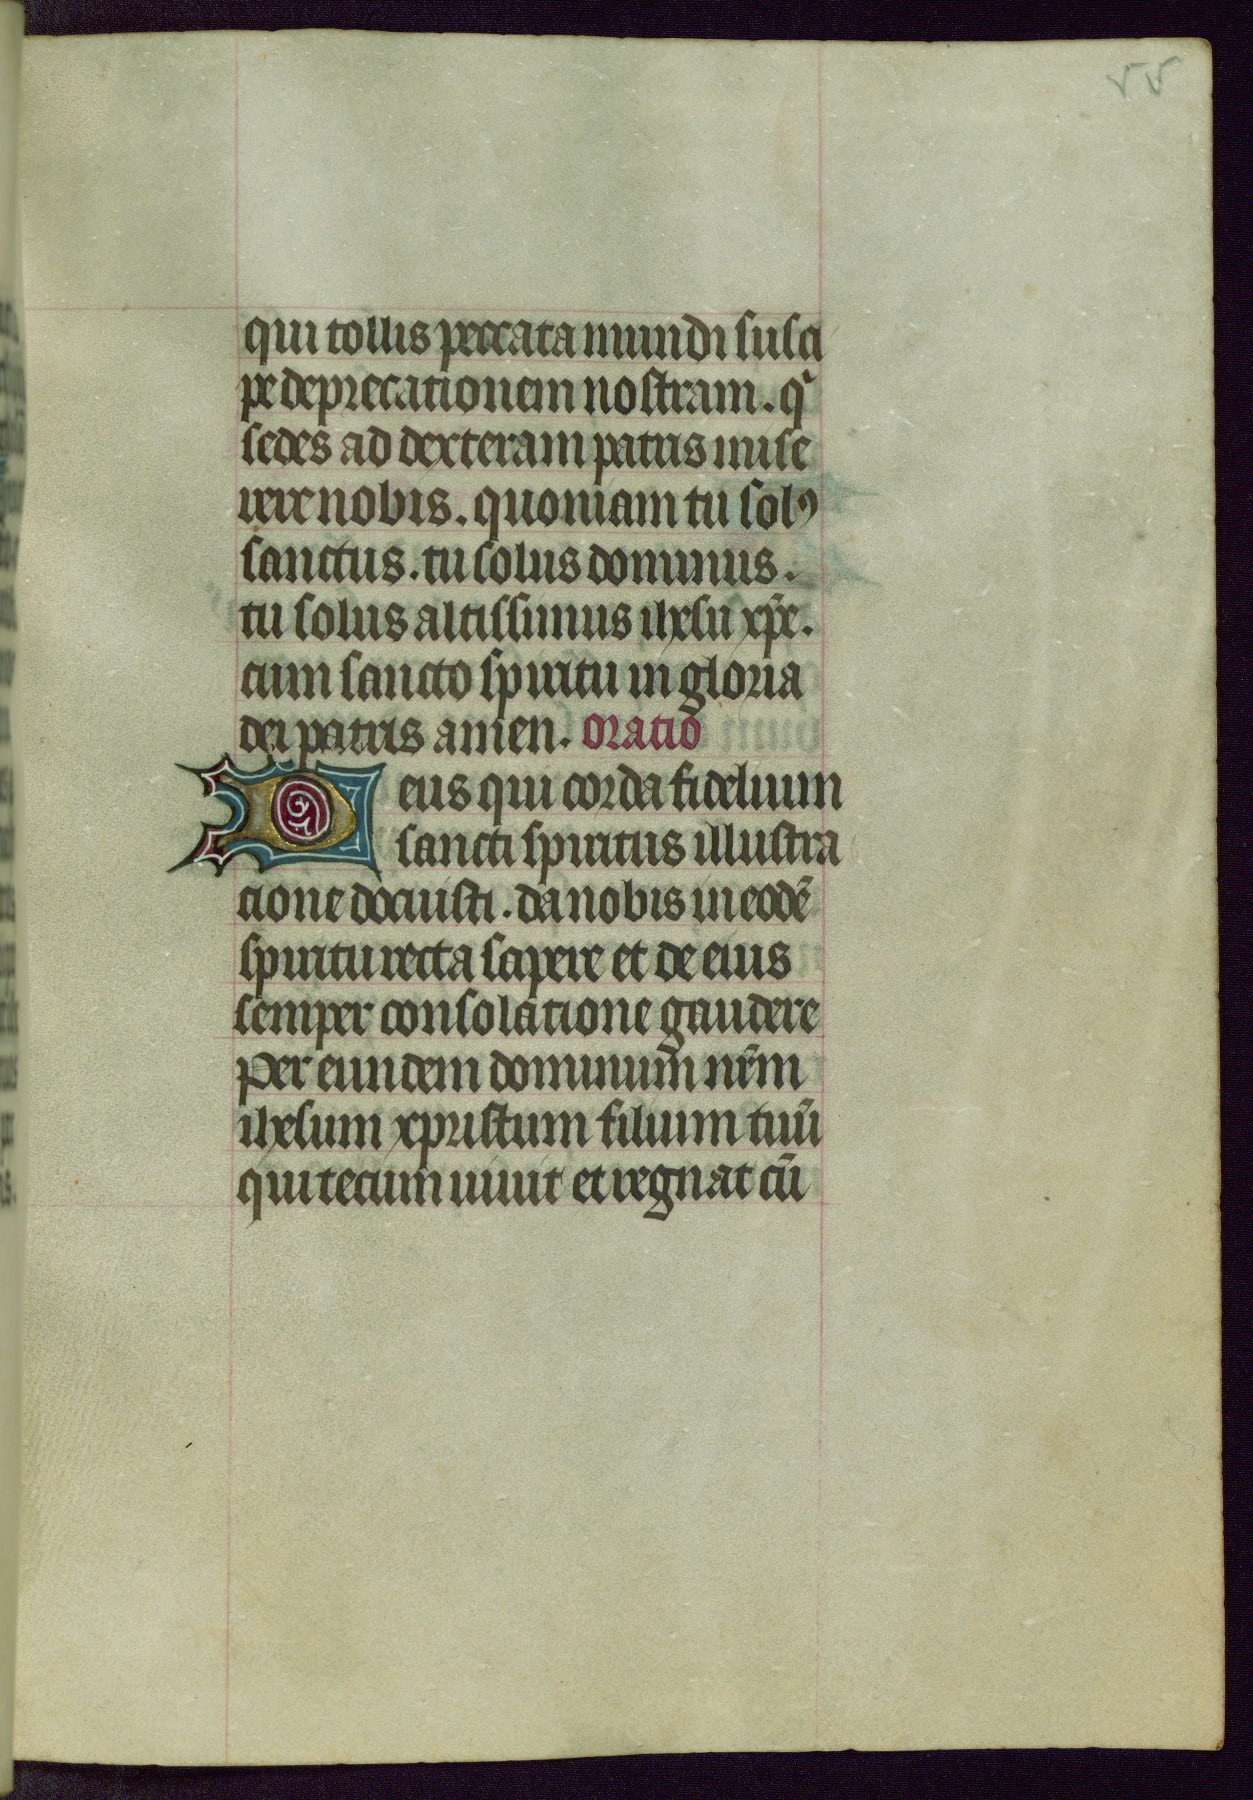 55
qui tollis peccata mundi susci
pe deprecationem nostram. qͥ
sedes ad dexteram patris mise
rere nobis. quoniam tu solꝰ
sanctus. tu solus dominus.
tu solus altissimus ihesu xp̄e.
cum sancto spiritu in gloria
dei patris amen. oratio
Deus qui corda fidelium
sancti spiritus illustra
cione docuisti. da nobis in eodē
spiritu recta sapere et de eius
semper consolatione gaudere
Per eundem dominum nr̄m
ihesum xpristum filium tuū
qui tecum uiuit et regnat cū